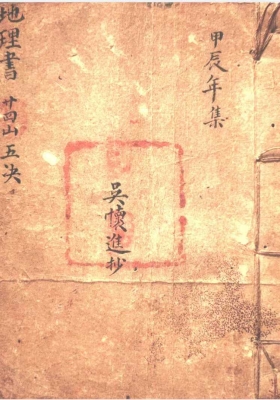 甲辰年集
吳懷進抄
地理書 廿四山五決